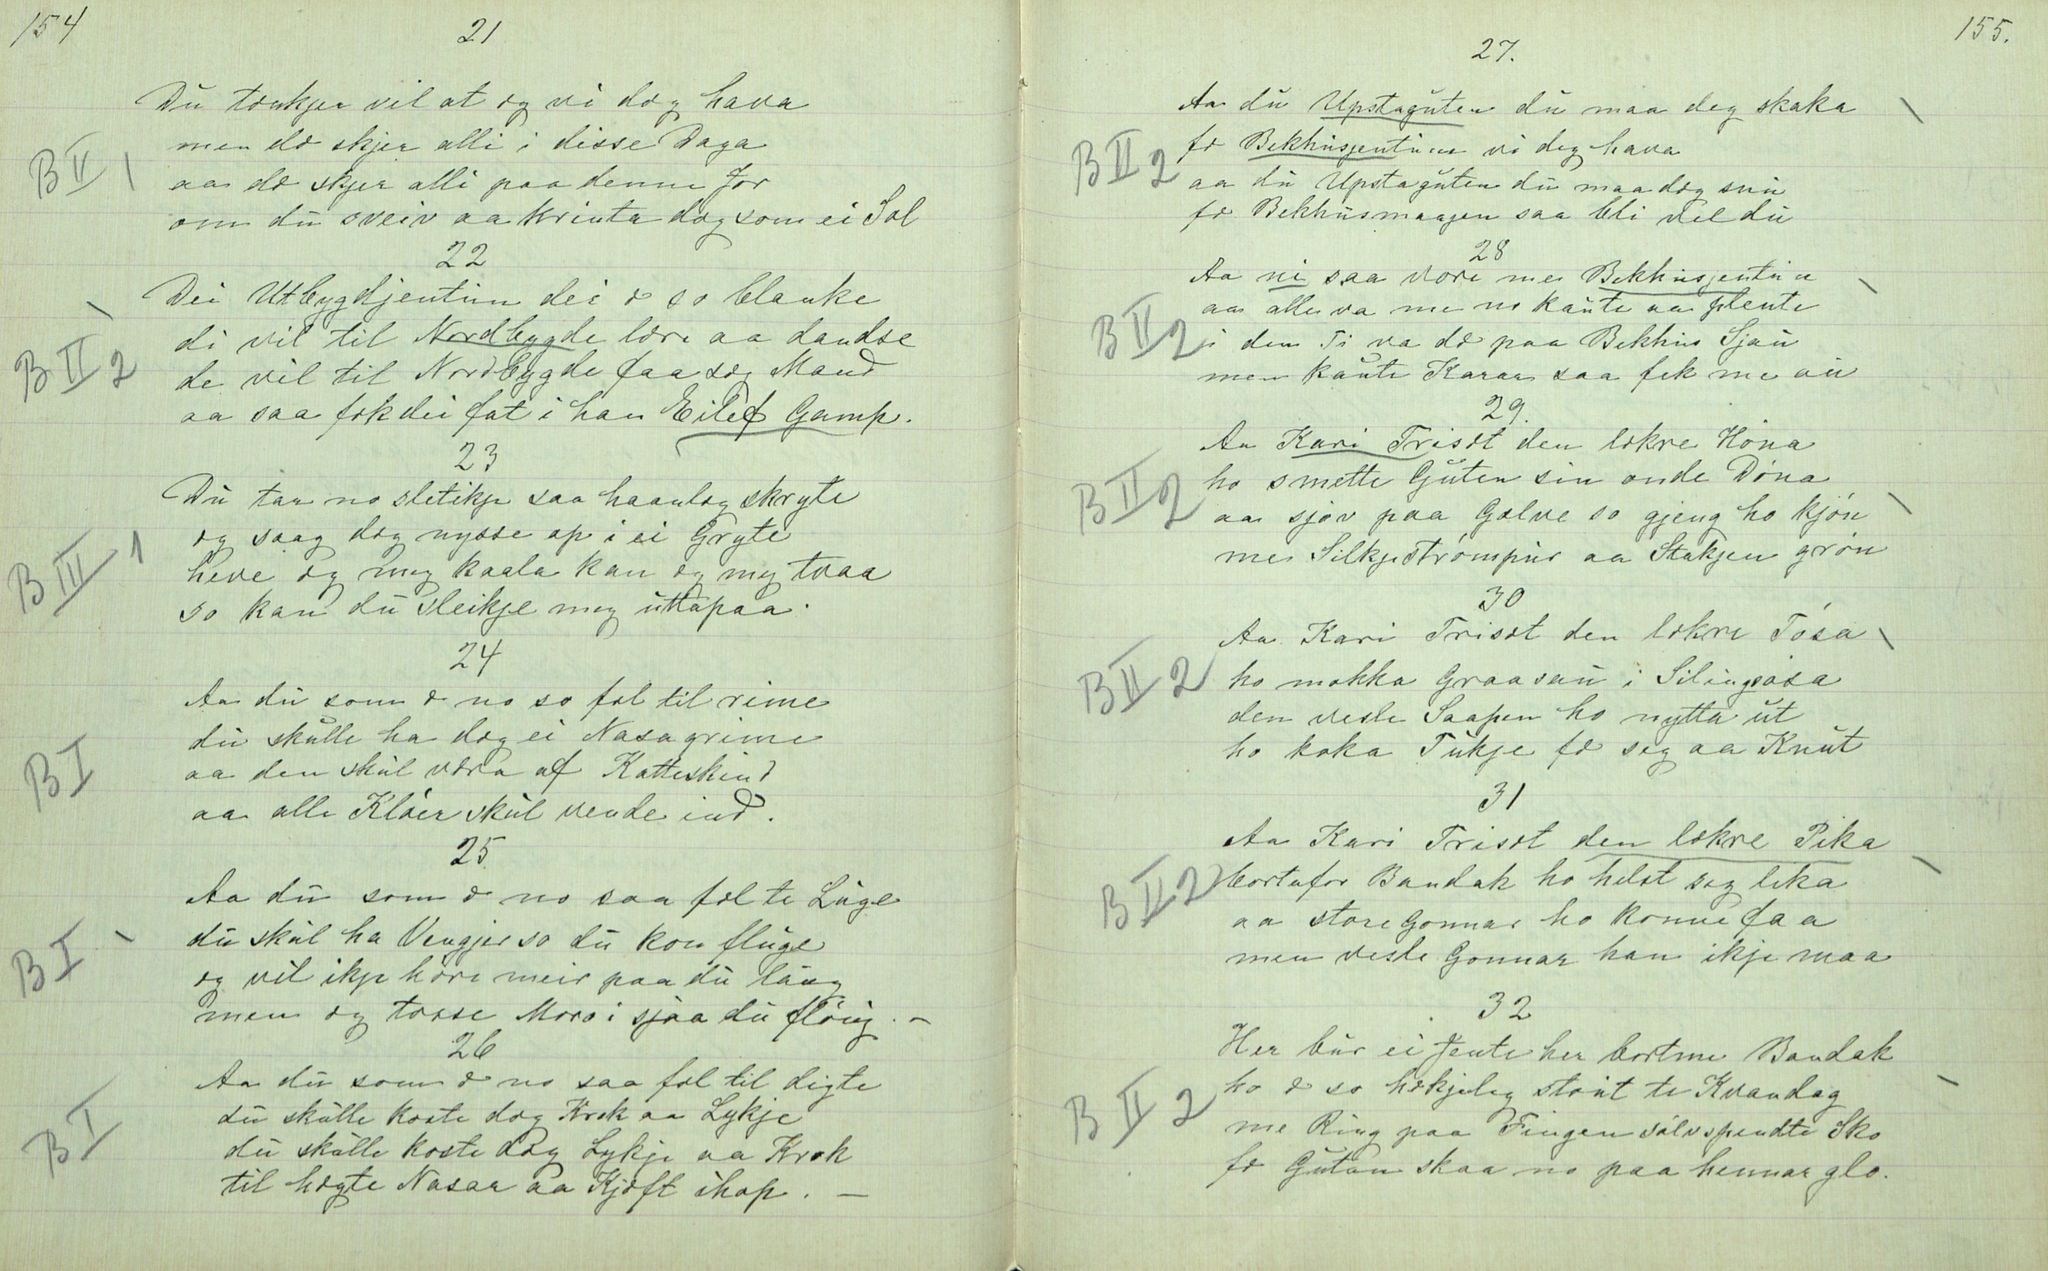 154
21
Du tænkjer vil at eg vi deg hava
men dæ skjer alli i disse Daga
aa dæ skjer alli paa denne Jor
om du sveiv aa krinta deg som ei Sol
B II 1
22
Dei Utbygdjentun dei æ so blanke
di vil til Nordbygde lære aa dandse
de vil til Nordbygde faa seg Mand
aa saa fek dei fat i han Eilef Gamp.
B II 2
23
Du tar no sletikje saa haanleg skryte
eg saag deg nysse op i ei Gryte
heve eg meg kaala kan eg meg tvaa
so kan du sleikje meg uttapaa.
B III 1
24
Aa du som æ no so fæl til rime
du skulle ha deg ei Nasagrime
aa den skul væra af Katteskind
aa alle Klóer skul vende ind.
B I
25
Aa du som æ no saa fæl te Luge
du skul ha Vengjer so du kon fluge
eg vil ikje høre meir paa du laug
men eg tosse Moro i sjaa du flóug. –
B I
26
Aa du som æ no saa fæl til digte
du skulle koste deg Krok aa Lykje
du skulle koste deg Lykje aa Krok
til hegte Nasar aa Kjæft ihop. –
B I
155.
27.
Aa du Upstaguten du maa deg skaka
fe Bekhusjentunn vi deg hava
aa du Upstaguten du maa deg snu
fe Bekhusmaagen saa bli vel du
B II 2
28
Aa ni saa vore me Bekhusjentun
aa alle va me no kaute aa plente
i den Ti va dæ paa Bekhus Sjau
men kaute Karar saa fek me au
B II 2
29.
Aa Kari Trisæt den lekre Hóna
ho smette Guten sin onde Dóna
aa sjøv paa Golve so gjeng ho kjón
me Silkjestrómpur aa Stakjen grón
B II 2
30
Aa Kari Trisæt den lekre Tósa
ho mokka Graasau i Silingsósa
den vesle Saapen ho nytta ut
ho koka Tukje fe seg aa Knut
B II 2
31
Aa Kari Trisæt den lekre Pika
bortafor Bandak ho helst seg lika
aa store Gonnar ho konne faa
men vesle Gonnar han ikje maa
B II 2
32
Her bur ei Jente her bortme Bandak
ho æ so hekjeleg stóut te Kvandag
me Ring paa Fingen sólvspendte Sko
fe Gutan skaa no paa hennar glo.
B II 2